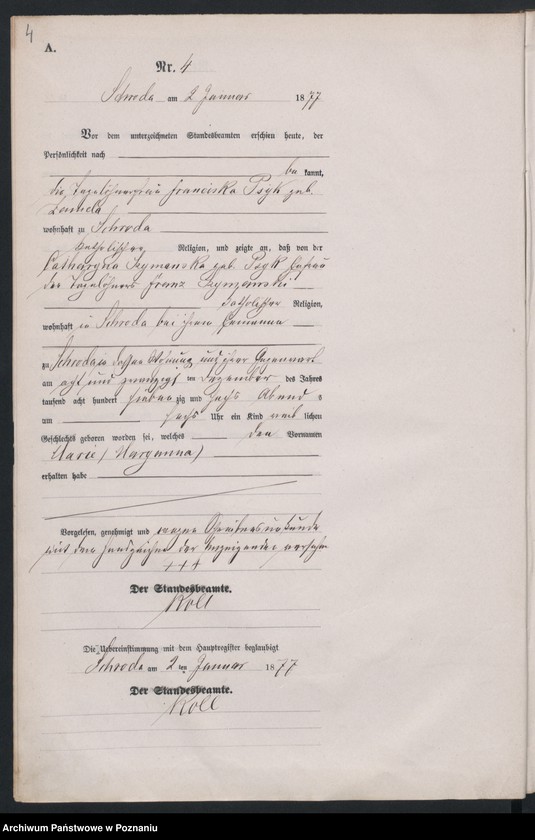 4
A.
Nr. 4
Schroda am 2 Januar 1877
Vor dem unterzeichneten Standesbeamten erschien heute, der
Persönlichkeit nach
bekannt,
die Tagelöhnerfrau Franciska Psyk geb.
wohnhaft zu Schroda
katholischer Religion, und zeigte an, daß von der
Catharyna Szymanska geb. Psyk Ehefrau
des Tagelöhners Franz Szymanski
katholischer Religion,
wohnhaft in Schroda bei ihrem Ehemanne
zu Schroda in Wohnung und ihrer Gegenwart
am acht und zwanzigsten Dezember des Jahres
tausend acht hundert siebenzig und sechs Abends
um sechs Uhr ein Kind weiblichen
Geschlechts geboren worden sei, welches den Vornamen
Marie (Maryanna)
erhalten habe
Vorgelesen, genehmigt und wegen Schreibensunkunde
mit dem Handzeichen der Anzeigenden versehen
+++
Der Standesbeamte.
Roll
Die Uebereinstimmung mit dem Hauptregister beglaubigt
Schroda am 2ten Januar 1877
Der Standesbeamte.
Roll
Archiwum Państwowe w Poznaniu